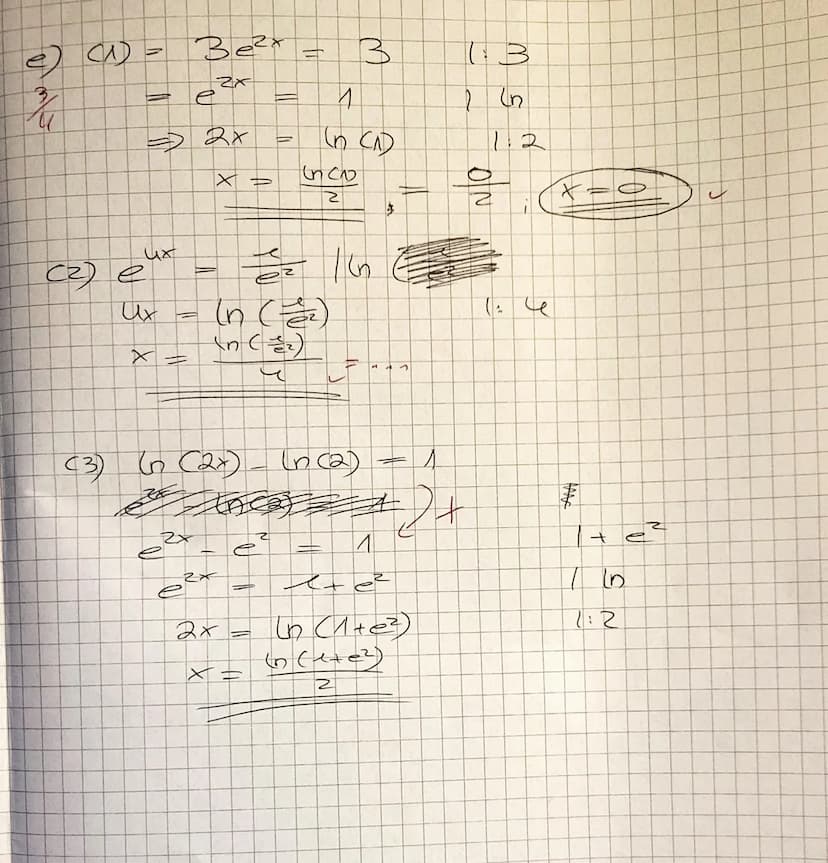 e) (1) = 3e^2x = 3 |: 3
3/4 = e^2x = 1 | ln
=> 2x = ln (1) |: 2
x = ln(1)/2 = 0/2 ; x = 0 ✓
(2) e^4x = 1/e^2 | ln
4x = ln (1/e^2) |: 4
x = ln(1/e^2)/4 ✓ = ...
(3) ln (2x) - ln(2) = 1
e^2x - e^2 = 1 | + e^2
e^2x = 1 + e^2 | ln
2x = ln (1+e^2) |: 2
x = ln(1+e^2)/2